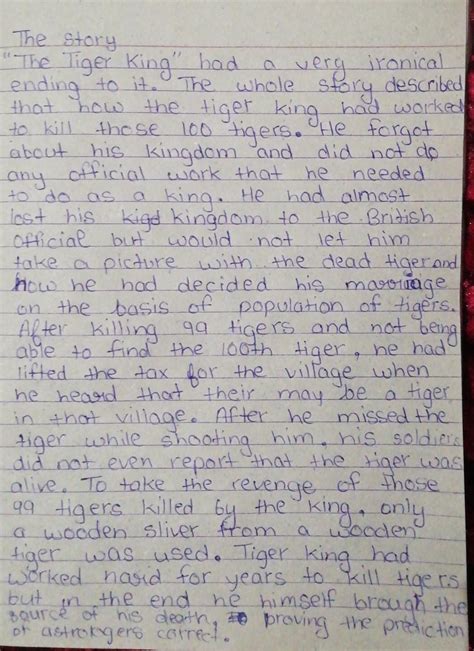 The story
"The Tiger King" had a very ironical
ending to it. The whole story described
that how the tiger king had worked
to kill those 100 tigers. He forgot
about his kingdom and did not do
any official work that he needed
to do as a king. He had almost
lost his kigd kingdom to the British
official but would not let him
take a picture with the dead tiger and
how he had decided his marriage
on the basis of population of tigers.
After killing 99 tigers and not being
able to find the 100th tiger, he had
lifted the tax for the village when
he heard that their may be a tiger
in that village. After he missed the
tiger while shooting him, his soldiers
did not even report that the tiger was
alive. To take the revenge of those
99 tigers killed by the king, only
a wooden sliver from a wooden
tiger was used. Tiger King had
worked hard for years to kill tigers
but in the end he himself brough the
source of his death, proving the prediction
of astrologers correct.